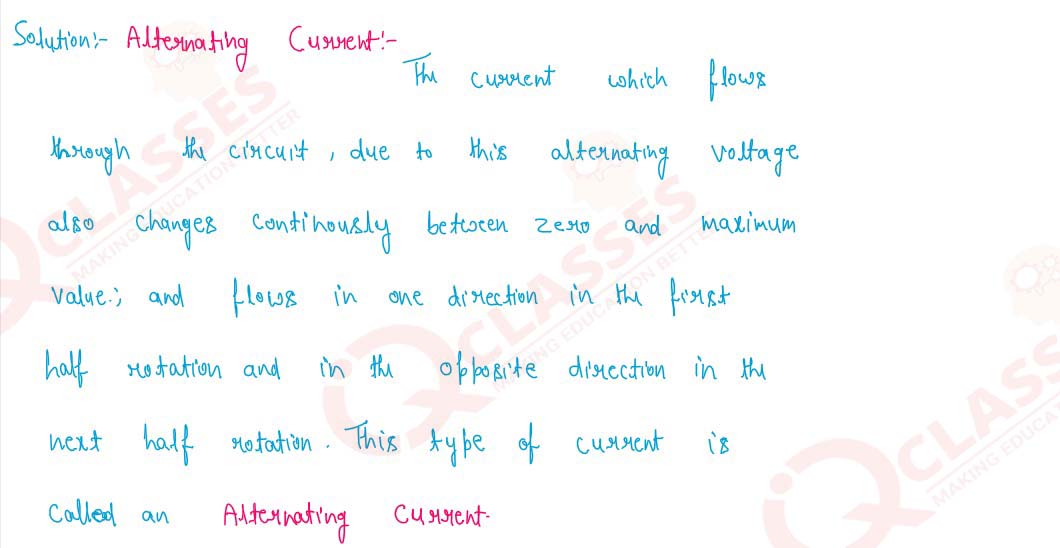 Solution:- Alternating Current:-
The current which flows
through the circuit, due to this alternating voltage
also changes continously between zero and maximum
value.; and flows in one direction in the first
half rotation and in the opposite direction in the
next half rotation. This type of current is
called an Alternating Current.
CLASSES
MAKING EDUCATION BETTER
CLASSES
MAKING EDUCATION BETTER
CLASS
MAKING EDUCA